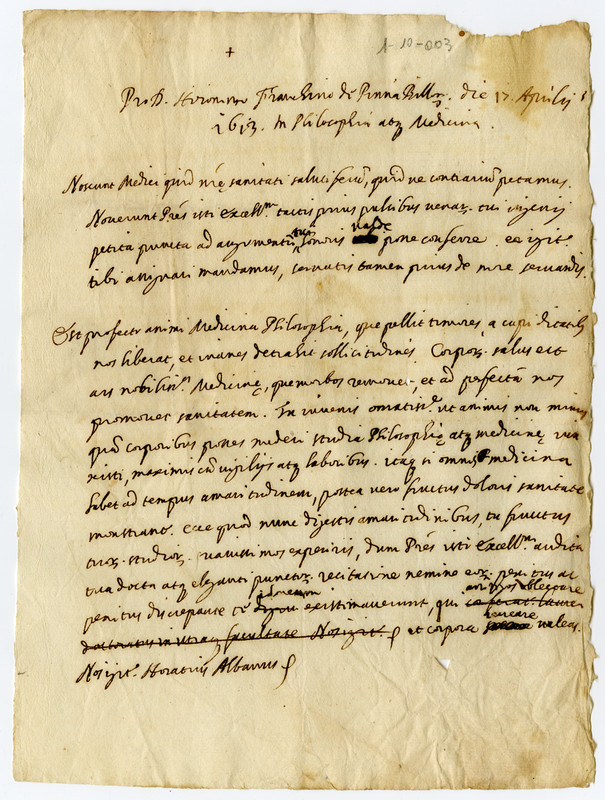 1-10-003
+
Pro D. Hieronimo Franchino de Pinna Billor. die 17. Aprilis
1613. In Philosophia atq Medicina.
Noscunt Medici quid nrę sanitati salutiferū, quid ve contrariū petamus.
Noverunt Pres isti Excellmi tactis prius pulsibus venar. tui ingenij
petita puncta ad augmentū tui honoris valde posse conferre. ea igit.
tibi assignari mandamus, servatis tamen prius de more servandis.
Est profecto animi Medicina Philosophia, que pellit timores, a cupiditatib,
nos liberat, et inanes detrahit sollicitudines. Corpor. salus est
ars nobiliss. Medicinę, que morbos removet, et ad perfectā nos
promovet sanitatem. Tu iuvenis ornatiss. ut animis non minus
quā corporibus posses mederi studia Philosophię atq medicinę
maximis cū vigilijs atq laboribus. itaq si omnis medicina
habet ad tempus amaritudinem, postea vero fructus doloris sanitate
monstrant. Ecce quod nunc digestis amaritudinibus, tu fructus
tuor. studior. experiris, dum Pres isti Excellmi audita
tua docta atq eleganti punctor. recitatione nemine eor. penitus ac
penitus discrepante te idoneum existimaverunt, qui
doctoratus in utraq facultate Nos igit. et corpora valeas.
Nos igit. Horatius Albanus